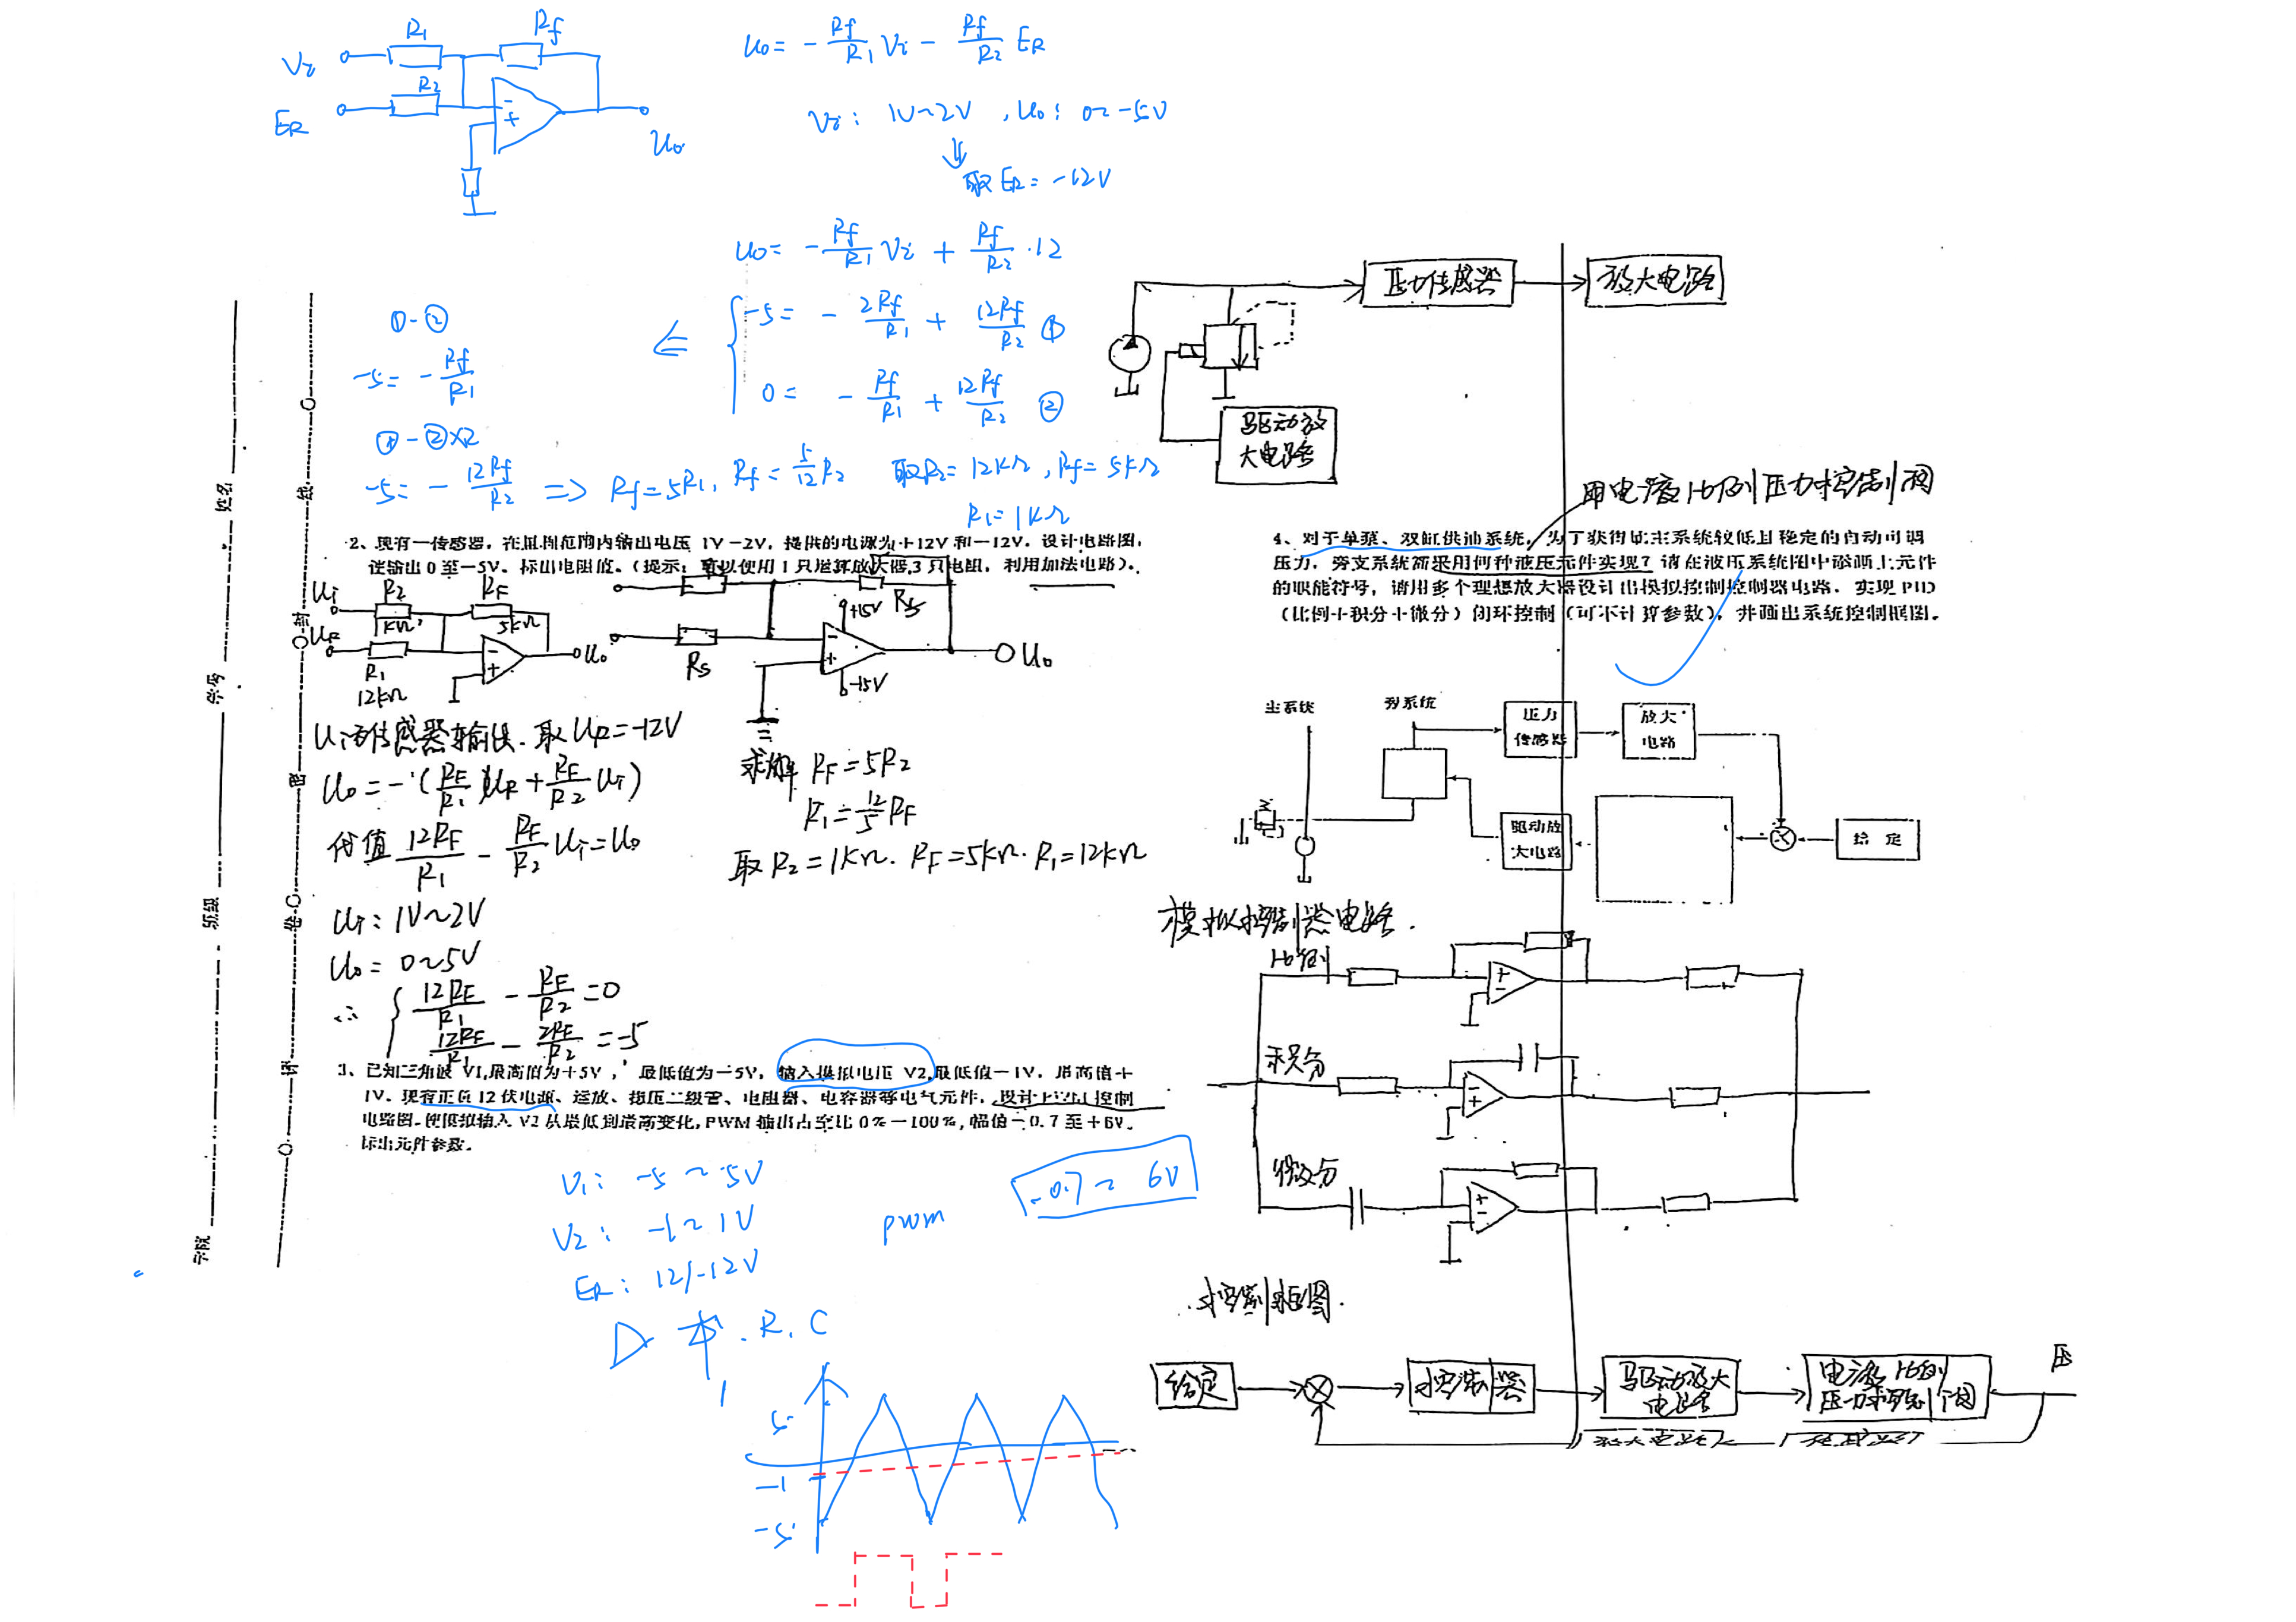 R1
Rf
Vi
R2
ER
Uo
Uo = -Rf/R1 Vi - Rf/R2 ER
Vi: 1V~2V, Uo: 0~-5V
⇓
取 ER = -12V
Uo = -Rf/R1 Vi + Rf/R2 ·12
-5 = -2Rf/R1 + 12Rf/R2 ①
0 = -Rf/R1 + 12Rf/R2 ②
①-②
-5 = -Rf/R1
①-②×2
-5 = -12Rf/R2 => Rf=5R1, Rf=5/12R2 取R2=12KΩ, Rf=5KΩ
R1=1KΩ
学院
班级
学号
姓名
2、现有一传感器，在量测范围内输出电压 1V-2V，提供的电源为+12V 和-12V，设计电路图，
使输出 0 至-5V。标出电阻值。(提示：可以使用 1 只运算放大器,3 只电阻，利用加法电路)。
Ui
R2
RF
1KΩ
5KΩ
UR
R1
12KΩ
Uo
+15V
-15V
Uo
Ui为传感器输出. 取UR=-12V
Uo=-(RF/R1 UR + RF/R2 Ui)
代值 12RF/R1 - RF/R2 Ui=Uo
Ui: 1V~2V
Uo= 0~5V
∴ 12RF/R1 - RF/R2 = 0
12RF/R1 - 2RF/R2 = -5
求解 RF=5R2
R1=12/5 RF
取 R2=1KΩ. RF=5KΩ. R1=12KΩ
3、已知三角波 V1,最高值为+5V，最低值为-5V，输入模拟电压 V2,最低值-1V，最高值+
1V。现有正负 12 伏电源、运放、稳压二极管、电阻器、电容器等电气元件，设计 PWM 控制
电路图，使模拟输入 V2 从最低到最高变化,PWM 输出占空比 0%-100%,幅值-0.7 至+6V。
标出元件参数。
V1: -5 ~ 5V
V2: -1 ~ 1V
ER: 12/-12V
pwm
-0.7 ~ 6V
R. C
5
-1
-5
压力传感器
放大电路
驱动放
大电路
用电液比例压力控制阀
4、对于单泵、双缸供油系统，为了获得比主系统较低且稳定的自动可调
压力，旁支系统需采用何种液压元件实现？请在液压系统图中添画上元件
的职能符号，请用多个理想放大器设计出模拟控制控制器电路，实现 PID
(比例+积分+微分)闭环控制(可不计算参数)，并画出系统控制框图。
主系统
旁系统
压力
传感器
放大
电路
驱动放
大电路
给 定
模拟控制器电路.
比例
积分
微分
控制框图.
给定
控制器
驱动放大
电路
电液比例
压力控制阀
压